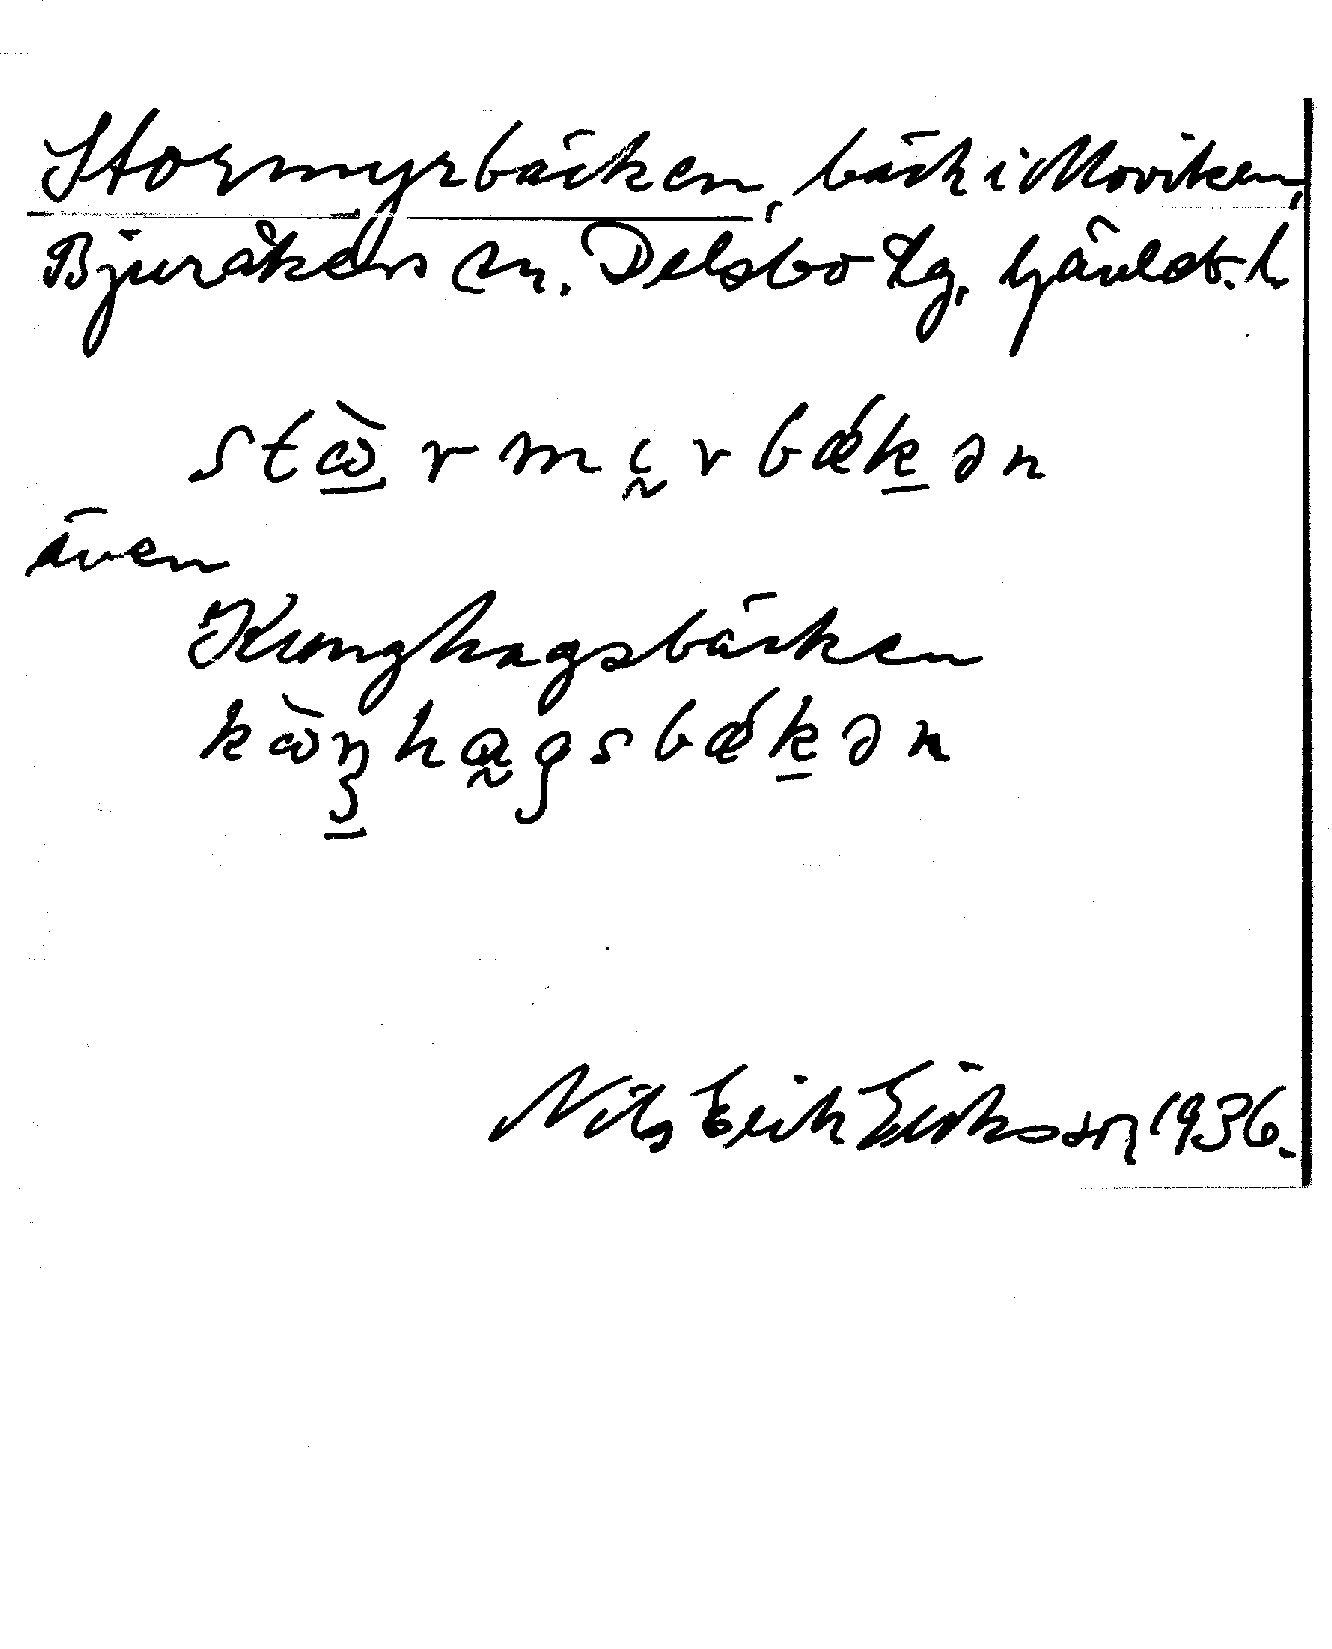 Stormyrbäcken, bäck i Moviken,
Bjuråkers sn. Delsbo tg. Gävleb. l.
stὼ̲rmḭrbǽk̲ən
även
Kunghagsbäcken
kὼŋ̲ha̰gsbǽk̲ən
Nils Erik Eriksson 1936.